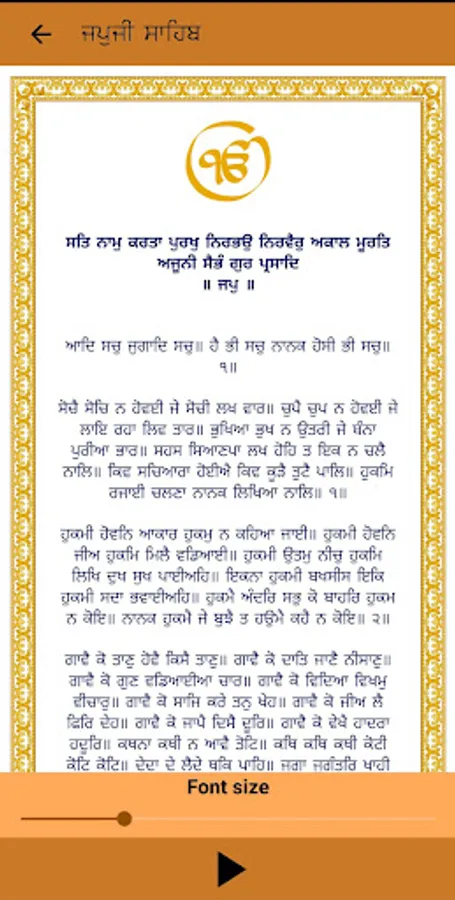 ਜਪੁਜੀ ਸਾਹਿਬ
ੴ
ਸਤਿ ਨਾਮੁ ਕਰਤਾ ਪੁਰਖੁ ਨਿਰਭਉ ਨਿਰਵੈਰੁ ਅਕਾਲ ਮੂਰਤਿ
ਅਜੂਨੀ ਸੈਭੰ ਗੁਰ ਪ੍ਰਸਾਦਿ
॥ ਜਪੁ ॥
ਆਦਿ ਸਚੁ ਜੁਗਾਦਿ ਸਚੁ॥ ਹੈ ਭੀ ਸਚੁ ਨਾਨਕ ਹੋਸੀ ਭੀ ਸਚੁ॥
੧॥
ਸੋਚੈ ਸੋਚਿ ਨ ਹੋਵਈ ਜੇ ਸੋਚੀ ਲਖ ਵਾਰ॥ ਚੁਪੈ ਚੁਪ ਨ ਹੋਵਈ ਜੇ
ਲਾਇ ਰਹਾ ਲਿਵ ਤਾਰ॥ ਭੁਖਿਆ ਭੁਖ ਨ ਉਤਰੀ ਜੇ ਬੰਨਾ
ਪੁਰੀਆ ਭਾਰ॥ ਸਹਸ ਸਿਆਣਪਾ ਲਖ ਹੋਹਿ ਤ ਇਕ ਨ ਚਲੈ
ਨਾਲਿ॥ ਕਿਵ ਸਚਿਆਰਾ ਹੋਈਐ ਕਿਵ ਕੂੜੈ ਤੁਟੈ ਪਾਲਿ॥ ਹੁਕਮਿ
ਰਜਾਈ ਚਲਣਾ ਨਾਨਕ ਲਿਖਿਆ ਨਾਲਿ॥ ੧॥
ਹੁਕਮੀ ਹੋਵਨਿ ਆਕਾਰ ਹੁਕਮੁ ਨ ਕਹਿਆ ਜਾਈ॥ ਹੁਕਮੀ ਹੋਵਨਿ
ਜੀਅ ਹੁਕਮਿ ਮਿਲੈ ਵਡਿਆਈ॥ ਹੁਕਮੀ ਉਤਮੁ ਨੀਚੁ ਹੁਕਮਿ
ਲਿਖਿ ਦੁਖ ਸੁਖ ਪਾਈਅਹਿ॥ ਇਕਨਾ ਹੁਕਮੀ ਬਖਸੀਸ ਇਕਿ
ਹੁਕਮੀ ਸਦਾ ਭਵਾਈਅਹਿ॥ ਹੁਕਮੈ ਅੰਦਰਿ ਸਭੁ ਕੋ ਬਾਹਰਿ ਹੁਕਮ
ਨ ਕੋਇ॥ ਨਾਨਕ ਹੁਕਮੈ ਜੇ ਬੁਝੈ ਤ ਹਉਮੈ ਕਹੈ ਨ ਕੋਇ॥ ੨॥
ਗਾਵੈ ਕੋ ਤਾਣੁ ਹੋਵੈ ਕਿਸੈ ਤਾਣੁ॥ ਗਾਵੈ ਕੋ ਦਾਤਿ ਜਾਣੈ ਨੀਸਾਣੁ॥
ਗਾਵੈ ਕੋ ਗੁਣ ਵਡਿਆਈਆ ਚਾਰ॥ ਗਾਵੈ ਕੋ ਵਿਦਿਆ ਵਿਖਮੁ
ਵੀਚਾਰੁ॥ ਗਾਵੈ ਕੋ ਸਾਜਿ ਕਰੇ ਤਨੁ ਖੇਹ॥ ਗਾਵੈ ਕੋ ਜੀਅ ਲੈ
ਫਿਰਿ ਦੇਹ॥ ਗਾਵੈ ਕੋ ਜਾਪੈ ਦਿਸੈ ਦੂਰਿ॥ ਗਾਵੈ ਕੋ ਵੇਖੈ ਹਾਦਰਾ
ਹਦੂਰਿ॥ ਕਥਨਾ ਕਥੀ ਨ ਆਵੈ ਤੋਟਿ॥ ਕਥਿ ਕਥਿ ਕਥੀ ਕੋਟੀ
ਕੋਟਿ ਕੋਟਿ॥ ਦੇਦਾ ਦੇ ਲੈਦੇ ਥਕਿ ਪਾਹਿ॥ ਜੁਗਾ ਜੁਗੰਤਰਿ ਖਾਹੀ
Font size